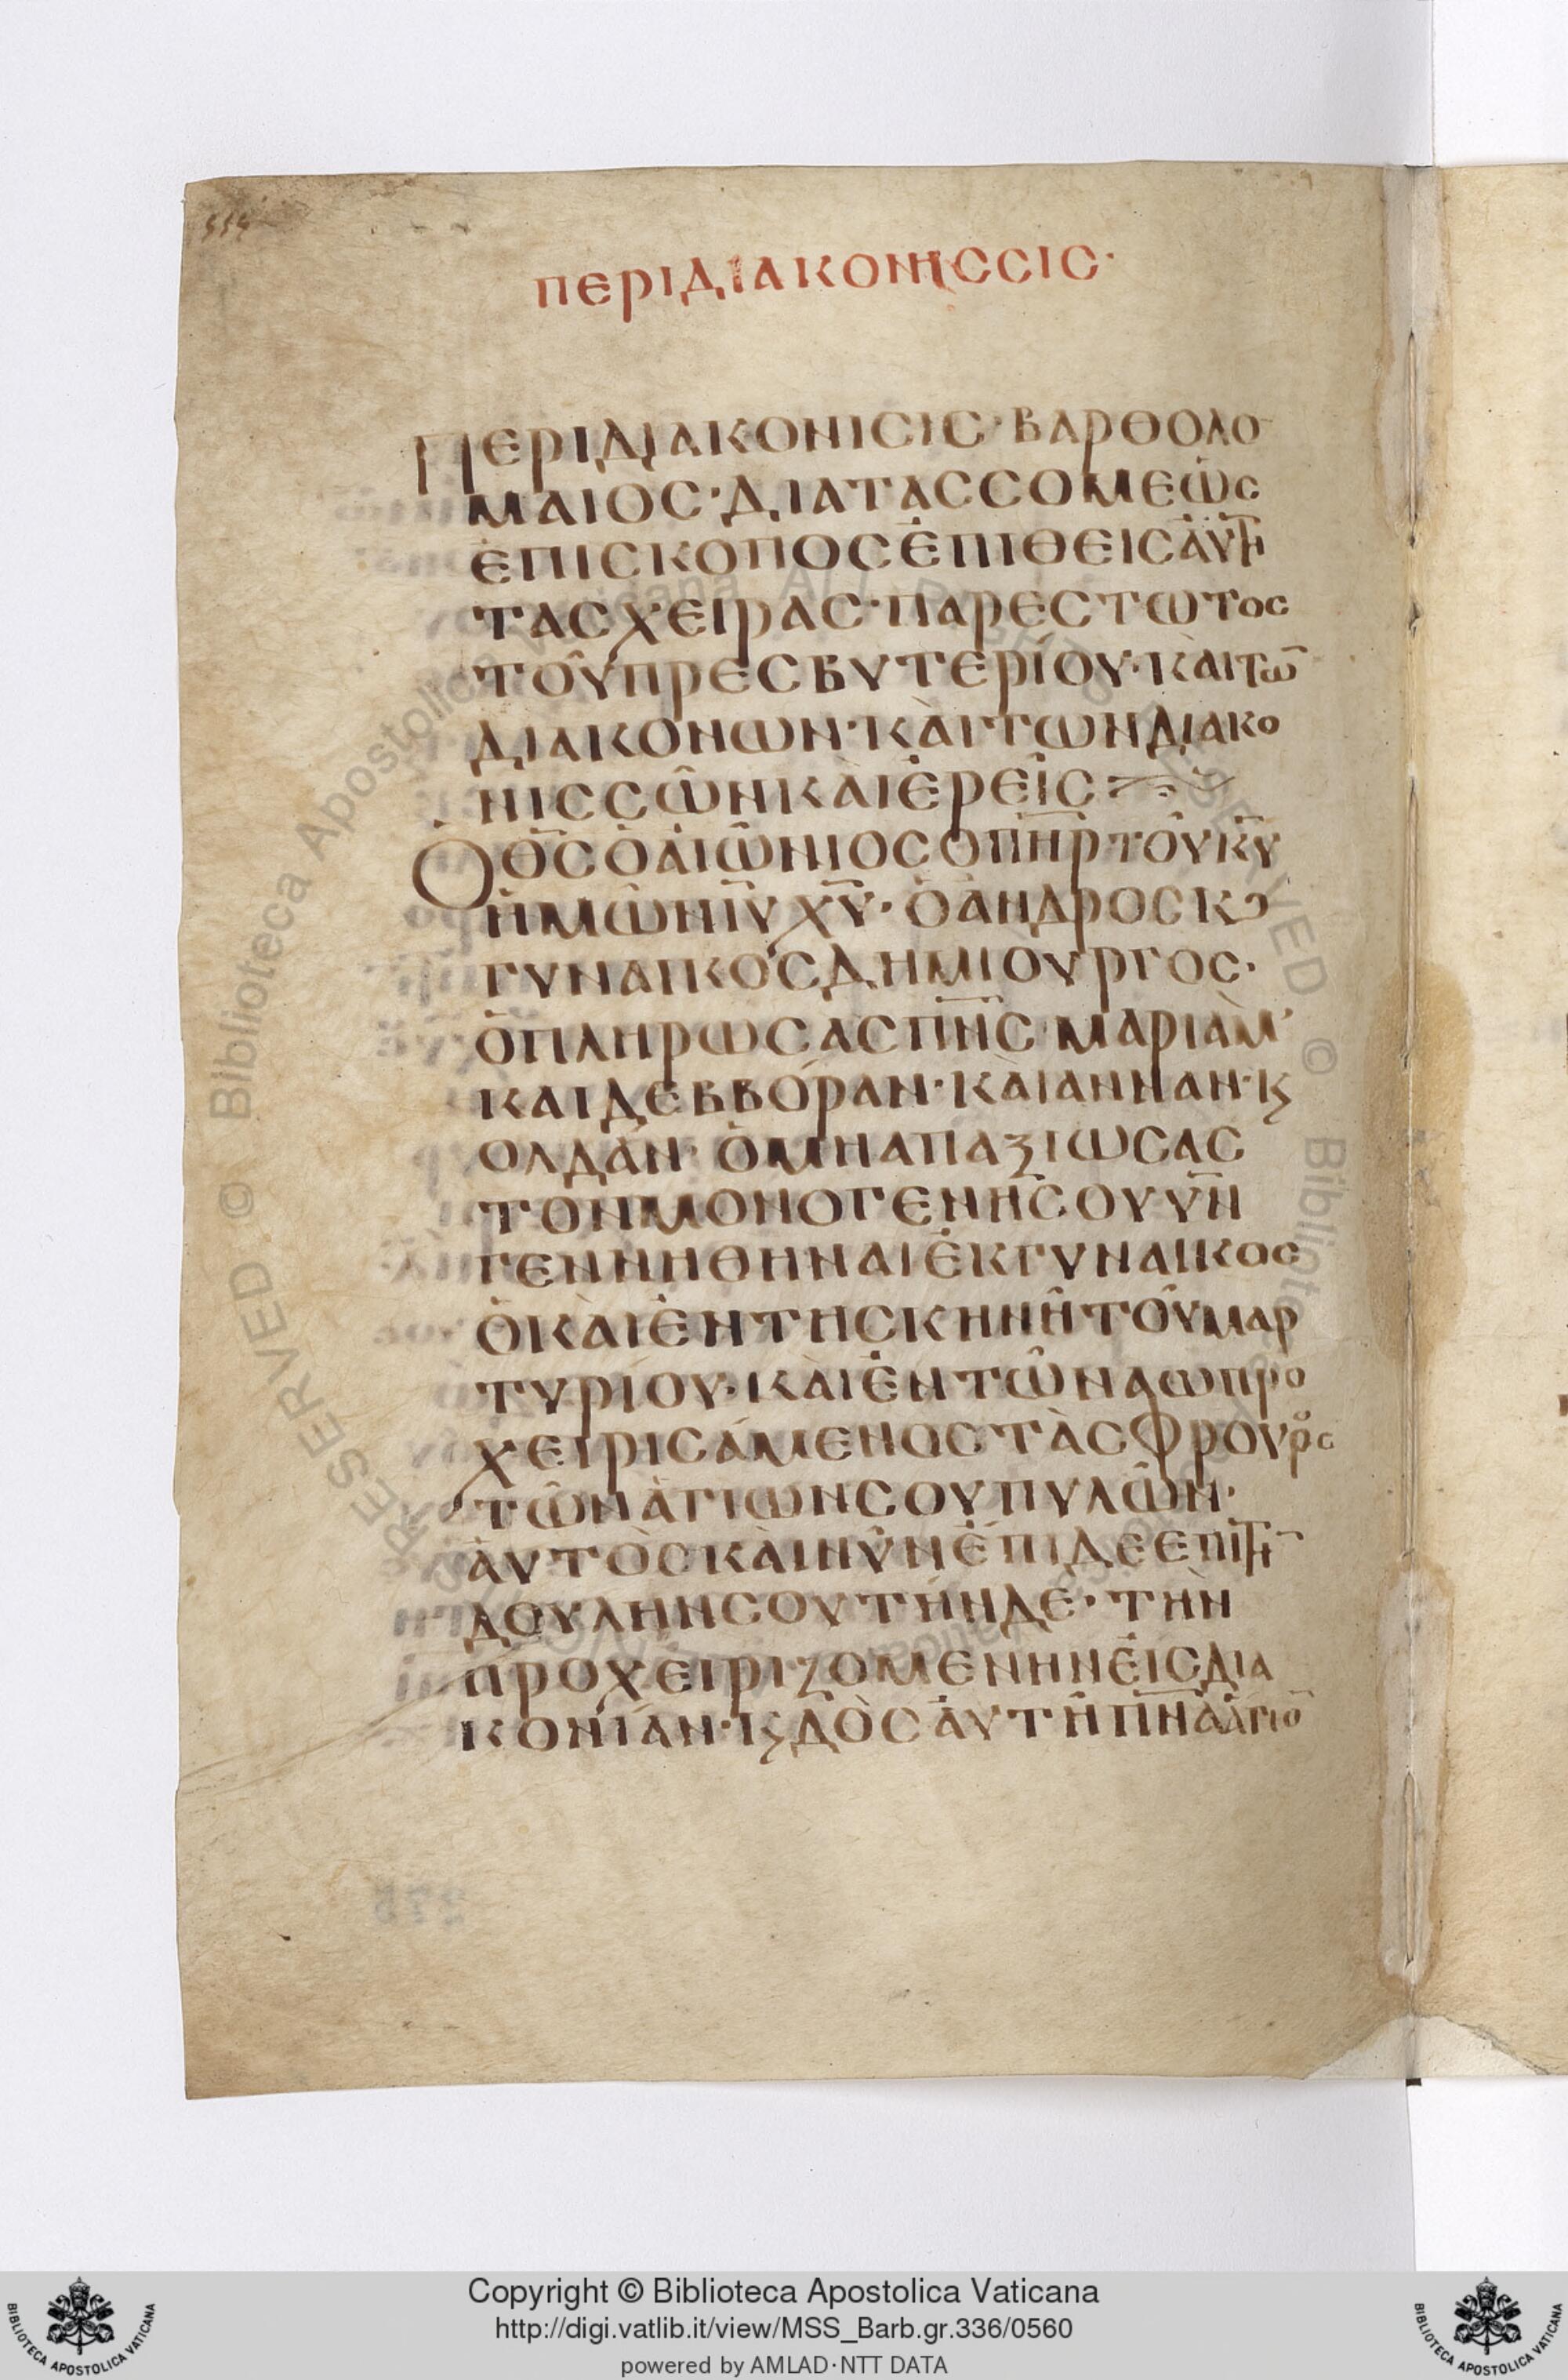 554
ΠΕΡΙΔΙΑΚΟΝΗϹϹΙϹ·
ΠΕΡΙΔΙΑΚΟΝΙϹΙϹ·ΒΑΡΘΟΛΟ
ΜΑΙΟϹ·ΔΙΑΤΑϹϹΟΜΕὡϹ
ἐΠΙϹΚΟΠΟϹἐΠΙΘΕΙϹἀΥΤῆ
ΤΑϹΧΕΙΡΑϹ·ΠΑΡΕϹΤΩΤΟϹ
ΤΟῦΠΡΕϹΒΥΤΕΡίΟΥ·ΚὰΙΤΩ̅
ΔΙΑΚΟΝΩΝ·ΚὰΙΤΩΝΔΙΑΚΟ
ΝΙϹϹῶΝΚὰΙἐΡΕῖϹ
ὉΘ̅Ϲ̅ὁΑΙώΝΙΟϹὁΠ̅Η̅Ρ̅ΤΟῦΚ̅Υ̅
ἡΜῶΝΙ̅Υ̅Χ̅Υ̅·ὁἀΝΔΡΟϹΚϽ
ΓΥΝΑΙΚΟϹΔΗΜΙΟΥΡΓΟϹ·
ὁΠΛΗΡΩϹΑϹΠ̅Ν̅Ϲ̅·ΜΑΡΙὰΜ
ΚΑΙΔΕΒΒΟΡΑΝ·ΚὰΙΑΝΝΑΝ·Κϛ
ΟΛΔΑΝ·ὁΜΗΑΠΑΞΙΩϹΑϹ
ΤΟΝΜΟΝΟΓΕΝΗϹΟΥΥ̅Ν̅
ΓΕΝΝΗΘΗΝΑΙἐΚΓΥΝΑΙΚΟϹ
ὁΚὰΙἐΝΤΗϹΚΗΝῆΤΟῦΜΑΡ
ΤΥΡίΟΥ·ΚὰΙἐΝΤῶΝΑΩΠΡΟ
ΧΕΙΡΙϹάΜΕΝΟϹΤὰϹΦΡΟΥΡΟϹ
ΤῶΝἁΓΙΩΝϹΟΥΠΥΛῶΝ·
ἀΥΤὸϹΚὰΙΝῦΝἐΠΙΔΕΕΠΙΤῊ
ΔΟΥΛΗΝϹΟΥΤήΝΔΕ·ΤὴΝ
ΠΡΟΧΕΙΡΙΖΟΜΕΝΗΝἐΙϹΔΙΑ
ΚΟΝίΑΝ·ΚϛΔὸϹἀΥΤῆΠ̅Ν̅Α̅ἁΓΙΟ̅
Copyright © Biblioteca Apostolica Vaticana
http://digi.vatlib.it/view/MSS_Barb.gr.336/0560
powered by AMLAD·NTT DATA
BIBLIOTECA APOSTOLICA VATICANA
BIBLIOTECA APOSTOLICA VATICANA